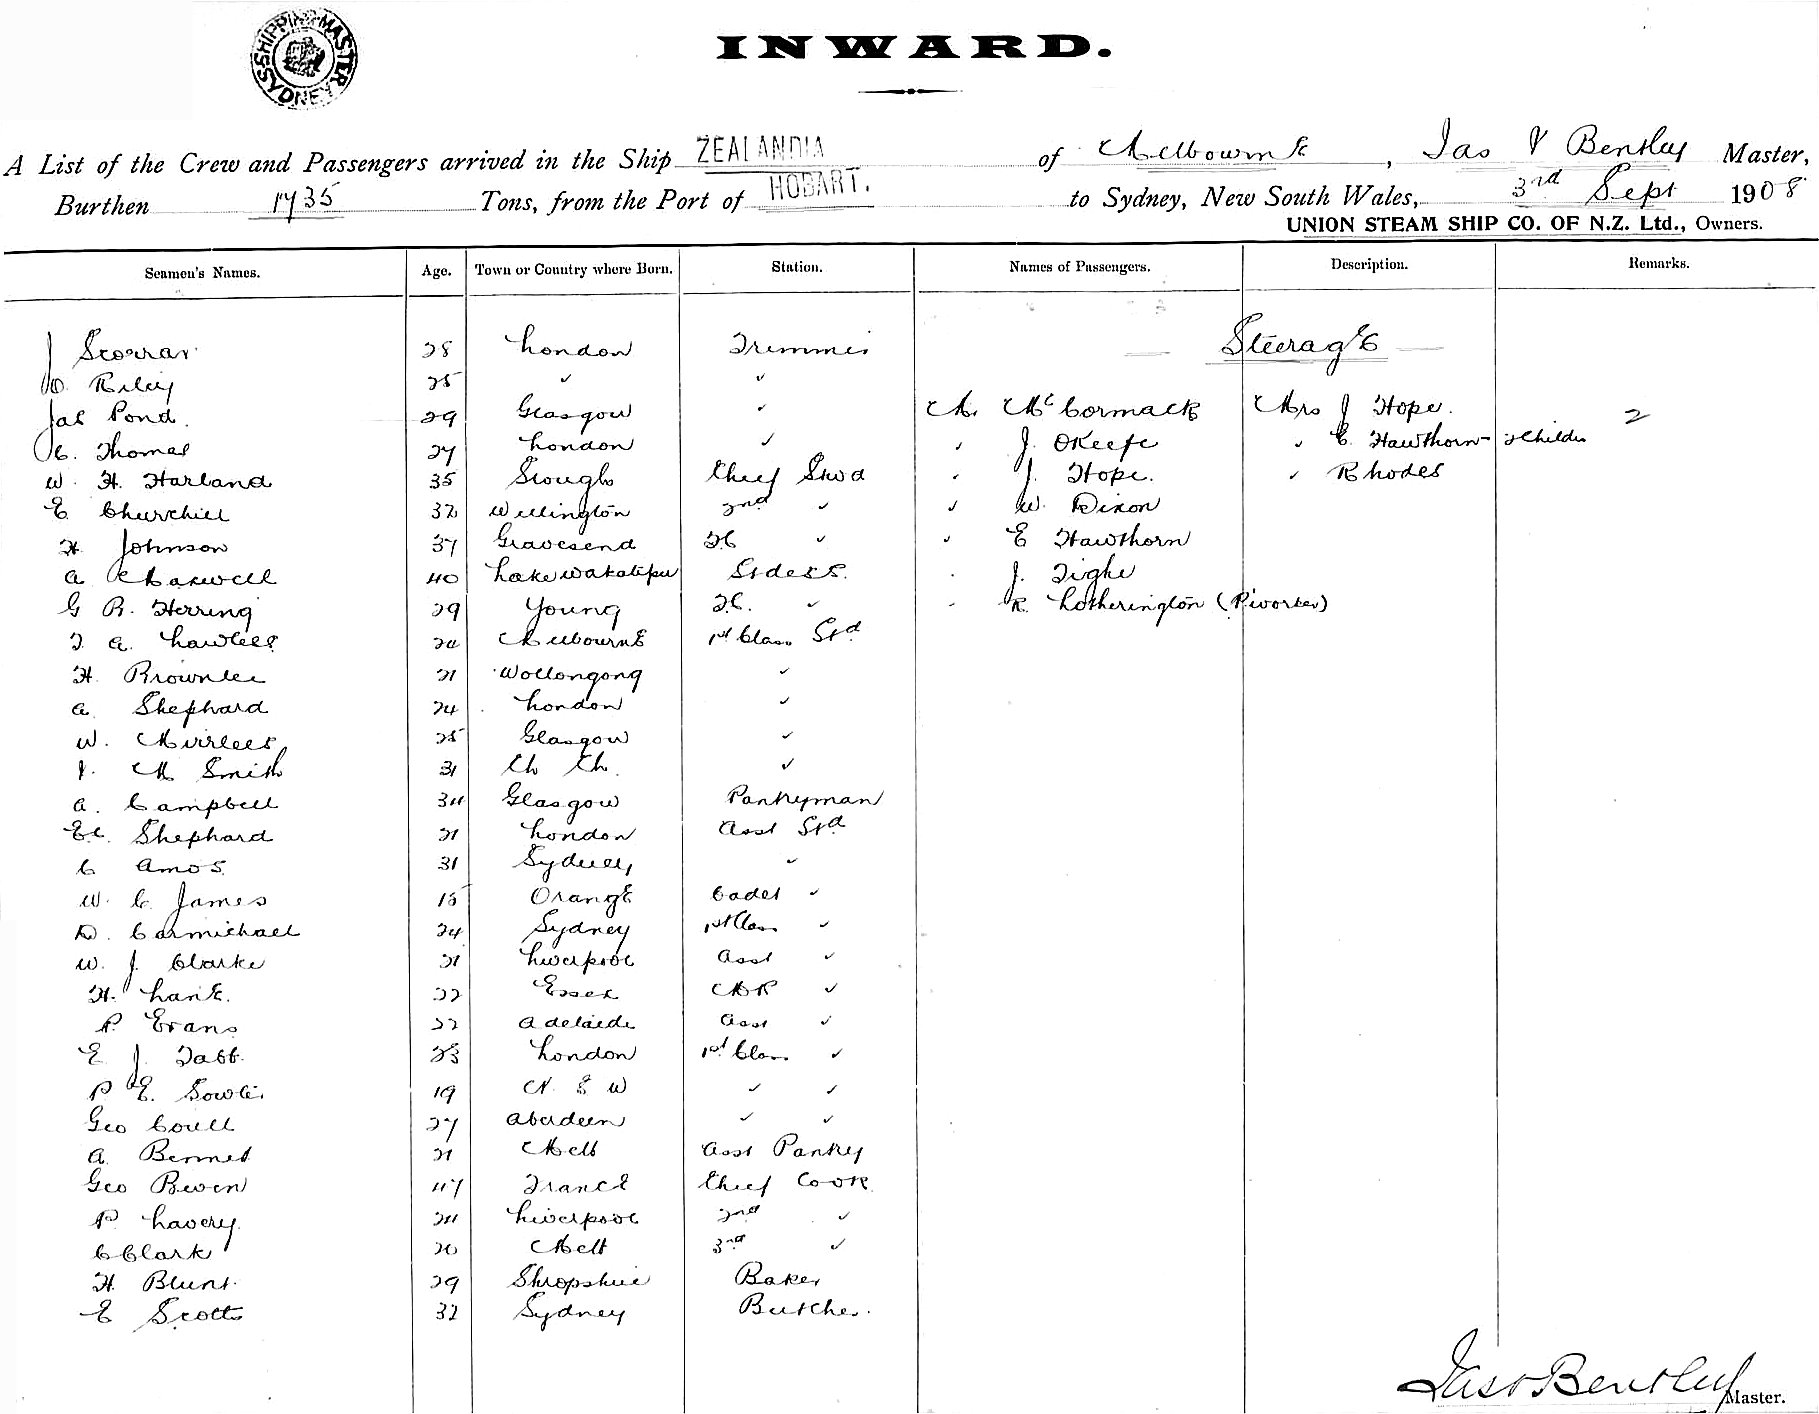 SHIPPING MASTER SYDNEY
INWARD.
A List of the Crew and Passengers arrived in the Ship ZEALANDIA of Melbourne, Jas Bentley Master,
Burthen 1735 Tons, from the Port of HOBART. to Sydney, New South Wales, 3rd Sept 1908
UNION STEAM SHIP CO. OF N.Z. Ltd., Owners.
Seamen's Names. Age. Town or Country where Born. Station. Names of Passengers. Description. Remarks.
Steerage
J 28 London Trimmer
Riley 25 " "
Jas Pond. 29 Glasgow " M. McCormack Mrs J Hope. 2
C. Thomas 27 London " " J. OKeefe " E. Hawthorn - Childn
W. H. Harland 35 Slough Chief Stwd " J. Hope. " Rhodes
E Churchill 32 Wellington 2nd " " W. Dixon
H Johnson 37 Gravesend " " E Hawthorn
A Maxwell 40 Lake Wakatipu " J. Tighe
G R. Herring 29 Young " " R. Lotherington
T A. Lawless 1st Class Std Melbourne
H Brownlee 21 Wollongong "
A Shephard 24 London "
W. Mirrlees 25 Glasgow "
J. M Smith 31 Ch Ch. "
A. Campbell 34 Glasgow Pantryman
Shephard 21 London Asst Std
C Amos 31 Sydney "
W. C. James 15 Orange Cadet "
D. Carmichael 24 Sydney 1st Class "
W. J. Clarke 21 Liverpool Asst "
H. Lane. 22 Essex "
P. Evans 22 Adelaide Asst "
E J. Tabb. 23 London 1st Class "
P E. 19 N. S W " "
Geo Coull 27 Aberdeen " "
A. Bennet 21 Melb Asst Pantry
Geo Bewen 47 France Chief Cook
P. Lavery. 24 Liverpool 2nd "
C Clark 20 Melb 3rd "
H. Blunt. 29 Shropshire Baker
E Scotts 32 Sydney Butcher.
Jas Bentley Master.